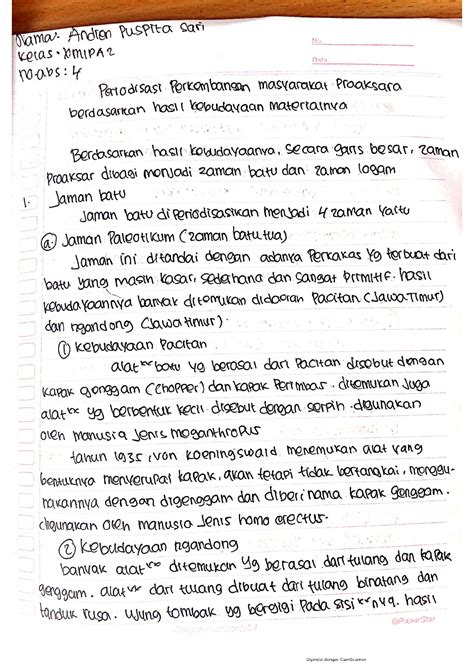 Nama: Andien Puspita Sari
Kelas: XMIPA2
no abs: 4
No.
Date.
Periodisasi Perkembangan masyarakat Praaksara
berdasarkan hasil kebudayaan materialnya
Berdasarkan hasil kebudayaannya, Secara garis besar, zaman
Praaksar dibagi menjadi zaman batu dan zaman logam
1. Jaman batu
Jaman batu di Periodisasikan menjadi 4 zaman yaitu
(a) Jaman Paleotikum (zaman batu tua)
Jaman ini ditandai dengan adanya Perkakas Yg terbuat dari
batu yang masih kasar, sederhana dan sangat Primitif. hasil
kebudayaannya banyak ditemukan didaeran Pacitan (Jawa Timur)
dan ngandong (Jawa timur).
(1) Kebudayaan Pacitan
alat batu yg berasal dari Pacitan disebut dengan
Kapak genggam (chopper) dan kapak Perimbas. ditemukan Juga
alat yg berbentuk kecil disebut dengan serpih. digunakan
oleh manusia Jenis meganthropus
tahun 1935, von koeningswald menemukan alat yang
bentuknya menyerupai kapak, akan tetapi tidak bertangkai, menggu-
nakannya dengan digenggam dan diberi nama kapak genggam.
digunakan oleh manusia Jenis homo erectus.
(2) Kebudayaan ngandong
banyak alat ditemukan yg berasal dari tulang dan kapak
genggam. alat dari tulang dibuat dari tulang binatang dan
tanduk rusa. Ujung tombak yg bergigi Pada sisi nya. hasil
©PaperStar
Dipindai dengan CamScanner